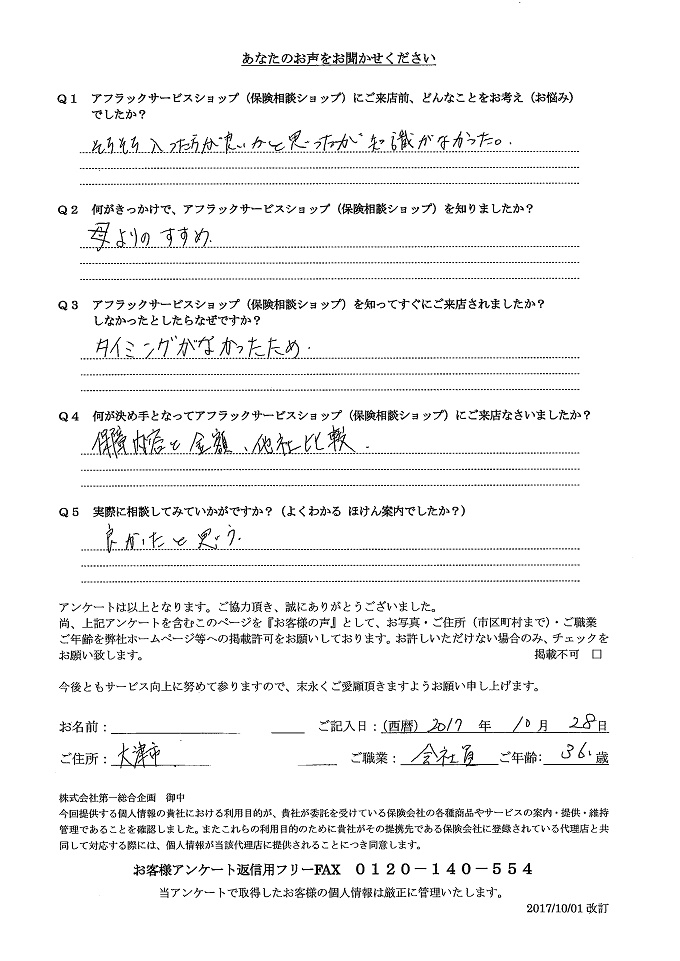 あなたのお声をお聞かせください
Q1 アフラックサービスショップ（保険相談ショップ）にご来店前、どんなことをお考え（お悩み）
でしたか？
そろそろ入った方が良いかと思ったが知識がなかった。
Q2 何がきっかけで、アフラックサービスショップ（保険相談ショップ）を知りましたか？
母よりのすすめ.
Q3 アフラックサービスショップ（保険相談ショップ）を知ってすぐにご来店されましたか？
しなかったとしたらなぜですか？
タイミングがなかったため.
Q4 何が決め手となってアフラックサービスショップ（保険相談ショップ）にご来店なさいましたか？
保障内容と金額、他社比較.
Q5 実際に相談してみていかがですか？（よくわかる ほけん案内でしたか？）
良かったと思う.
アンケートは以上となります。ご協力頂き、誠にありがとうございました。
尚、上記アンケートを含むこのページを『お客様の声』として、お写真・ご住所（市区町村まで）・ご職業
ご年齢を弊社ホームページ等への掲載許可をお願いしております。お許しいただけない場合のみ、チェックを
お願い致します。 掲載不可 □
今後ともサービス向上に努めて参りますので、末永くご愛顧頂きますようお願い申し上げます。
お名前： ご記入日：（西暦）2017 年 10 月 28 日
ご住所：大津市 ご職業：会社員 ご年齢：36 歳
株式会社第一総合企画 御中
今回提供する個人情報の貴社における利用目的が、貴社が委託を受けている保険会社の各種商品やサービスの案内・提供・維持
管理であることを確認しました。またこれらの利用目的のために貴社がその提携先である保険会社に登録されている代理店と共
同して対応する際には、個人情報が当該代理店に提供されることにつき同意します。
お客様アンケート返信用フリーFAX 0120－140－554
当アンケートで取得したお客様の個人情報は厳正に管理いたします。
2017/10/01 改訂